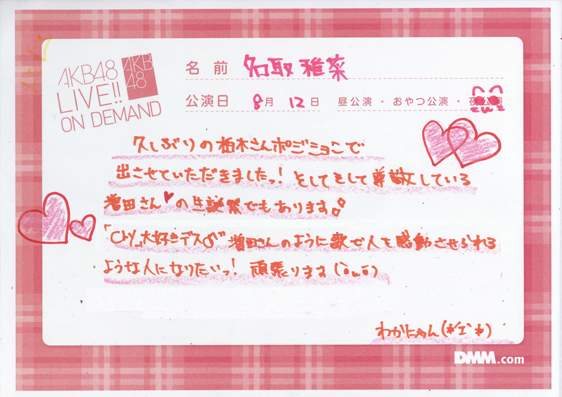 AKB48
LIVE!!
ON DEMAND
AKB
48
名前 名取稚菜
公演日 8月12日 昼公演・おやつ公演・夜公演
久しぶりの柏木さんポジションで
出させていただきましたっ! そしてそして尊敬している
増田さん♥の生誕祭でもあります
大好きデス 増田さんのように歌で人を感動させられる
ような人になりたいっ! 頑張ります
わかにゃん
DMM.com